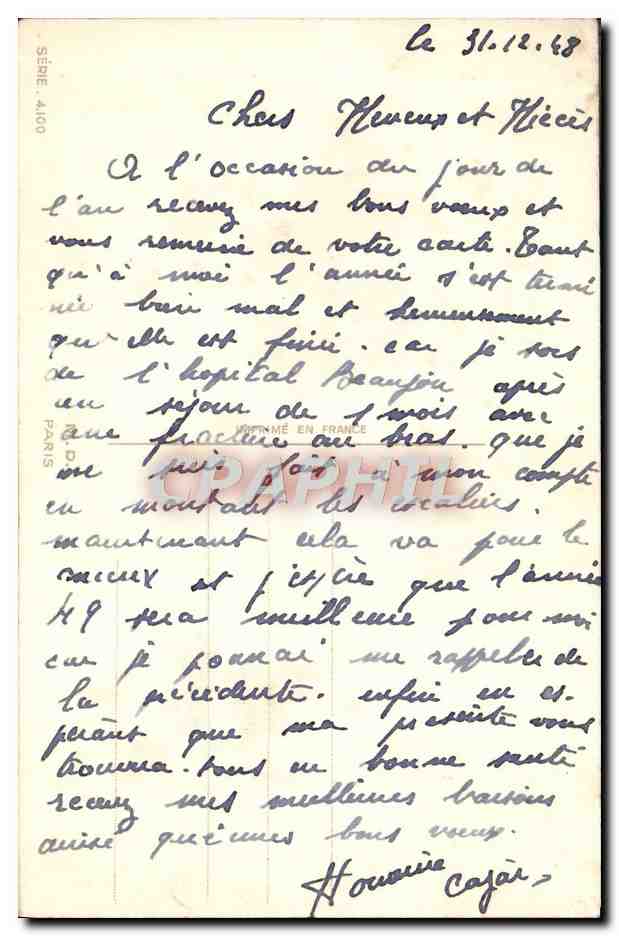 le 31.12.48
SÉRIE. 4.100
Chers Neveux et Nièces
A l'occasion du jour de
l'an recevez mes bons vœux et
vous remercie de votre carte. Tant
qu'à moi l'année s'est termi
née bien mal et heureusement
qu'elle est finie. car je sors
de l'hopital Beaujon après
un séjour de 1 mois avec
IMPRIMÉ EN FRANCE
une fracture au bras. que je
PARIS
me suis fait à mon compte
CPARAMA
en montant les escaliers.
maintenant cela va pour le
mieux et j'espère que l'année
49 sera meilleure pour moi
car je pourrai me rappeler de
la précédente. enfin en es-
pérant que ma présente vous
trouvera tous en bonne santé
recevez mes meilleures baisers
ainsi que mes bons vœux.
Honorine Cazàs